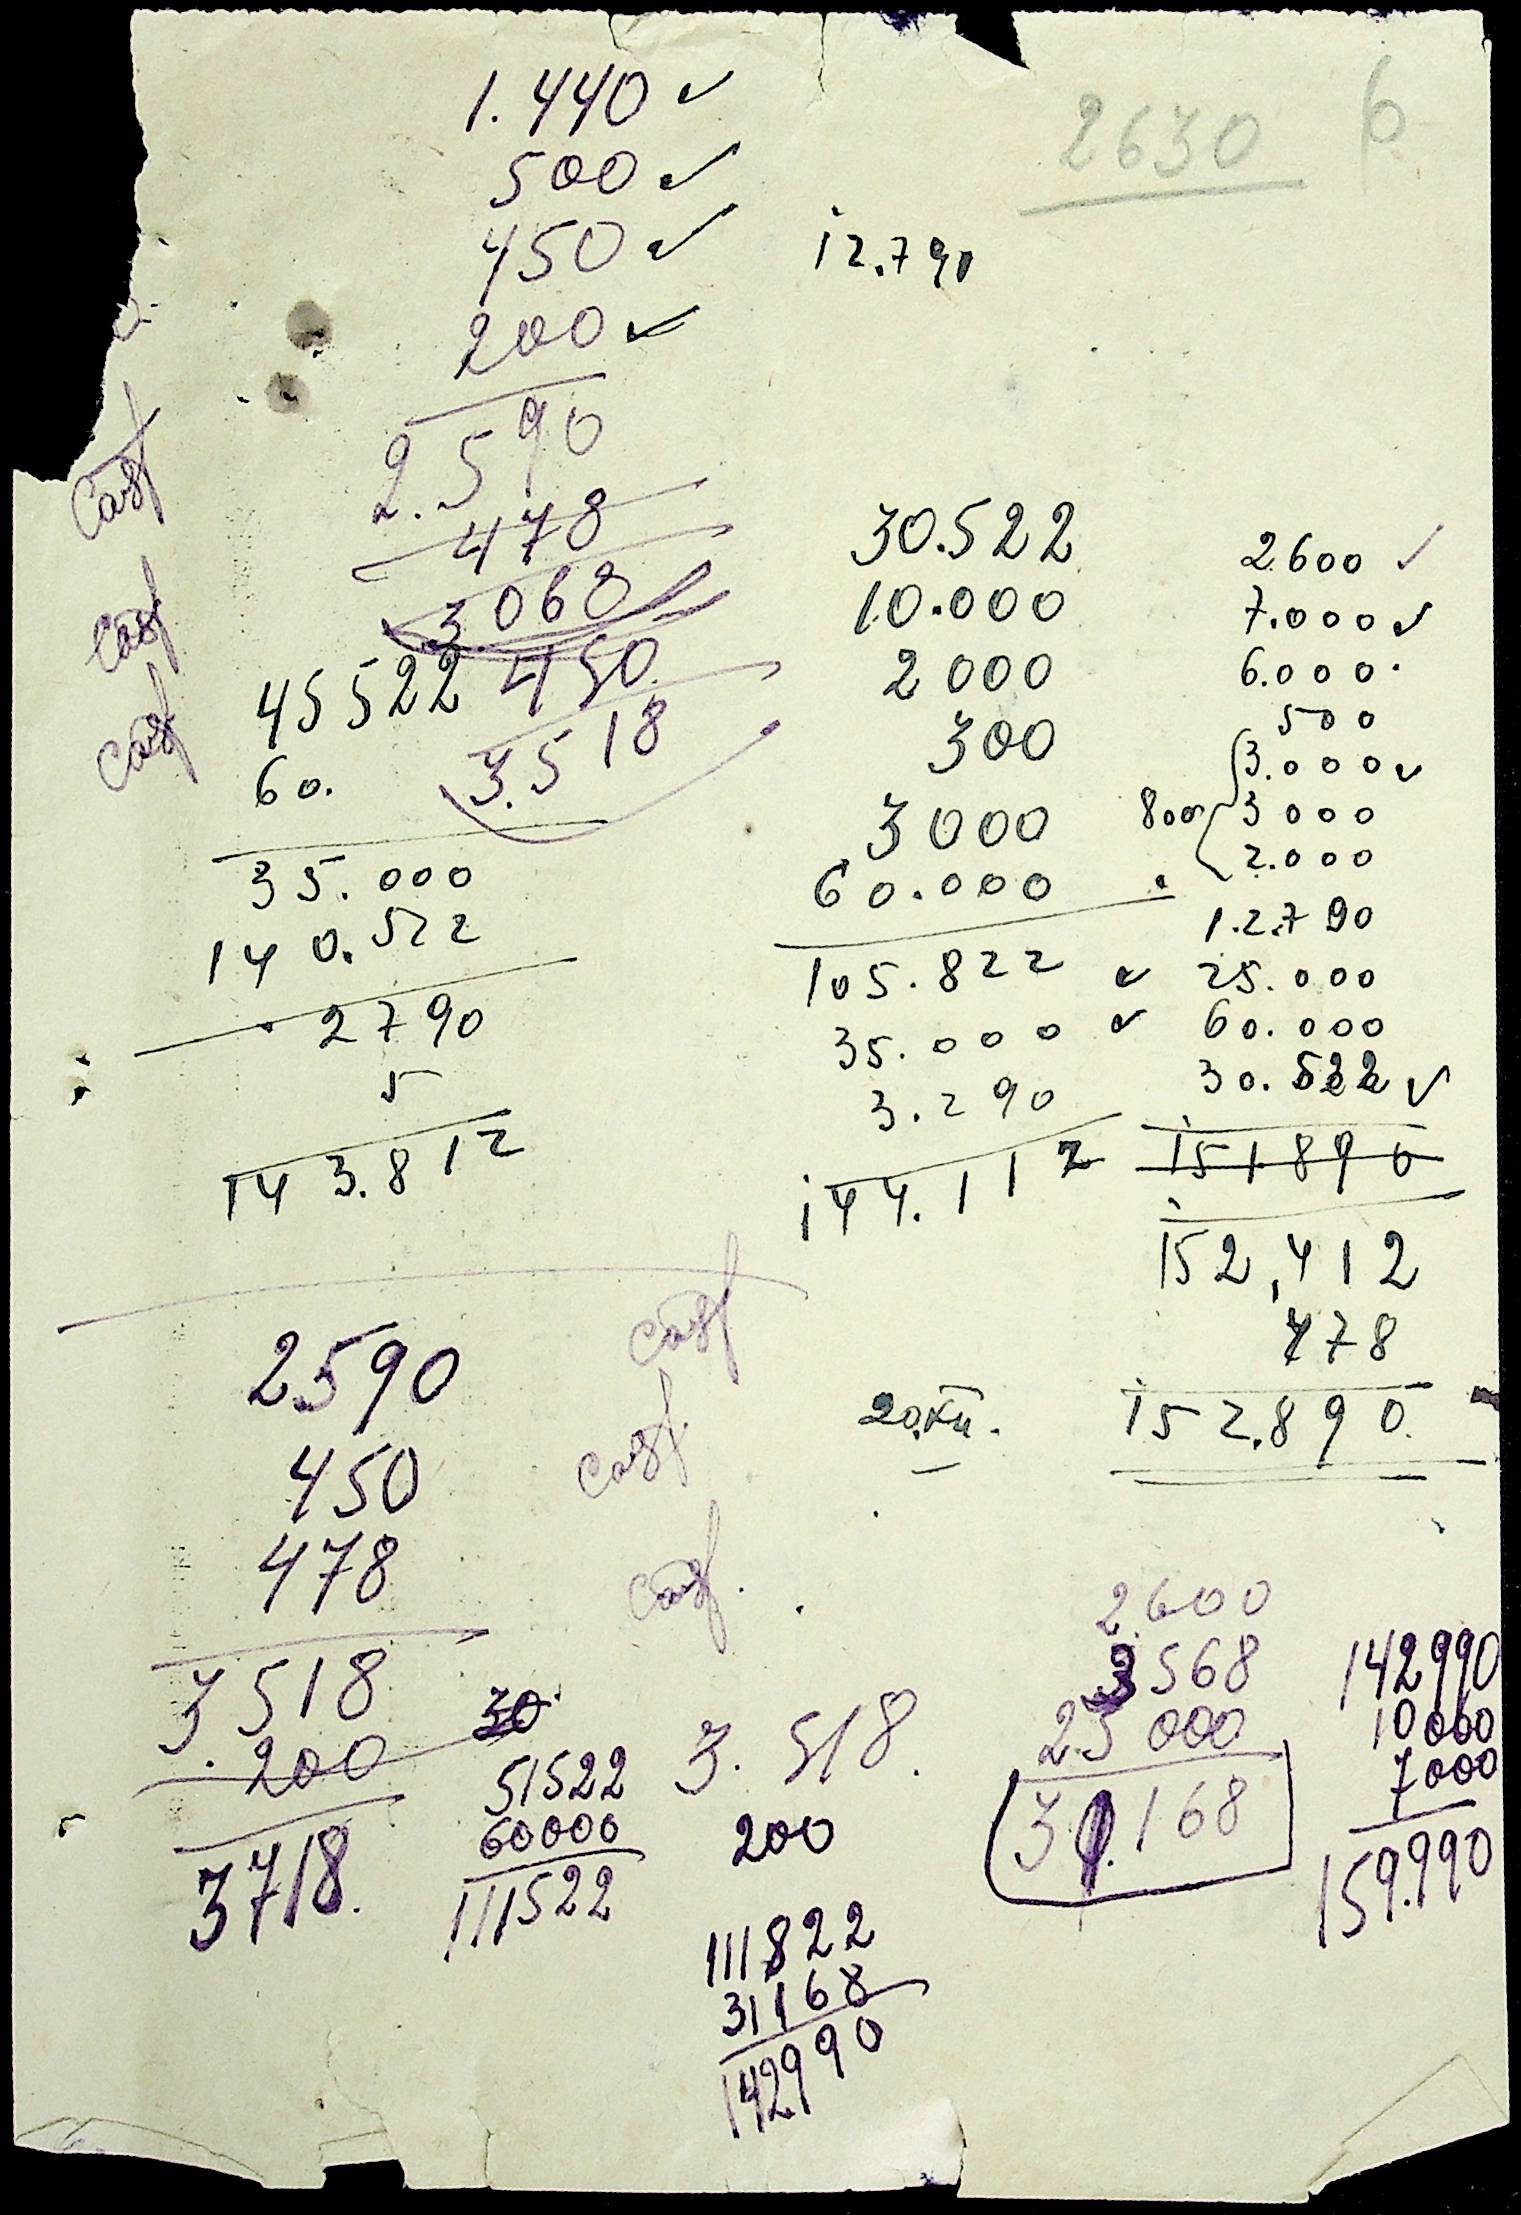 1.440 ✓
500 ✓
450 ✓
200 ✓
2.590
478
3068
450
3.518
2630
6
12.790
45522
60.
35.000
140.522
2790
5
143.812
30.522
10.000
2000
300
3000
60.000
105.822
35.000
3.290
144.112
2600 ✓
7.000 ✓
6.000.
500
3.000 ✓
800
3000
2.000
12.790
✓ 25.000
✓ 60.000
30.522 ✓
151890
152,412
478
152.890.
20.XII.
2590
450
478
3518
200
3718.
30
51522
60000
111522
3.518.
200
111822
31168
142990
2600
3568
25000
31.168
142990
10000
7000
159.990